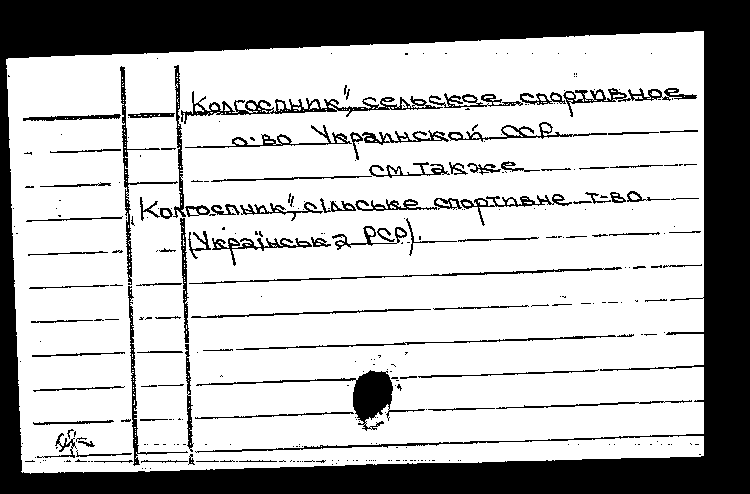 „Колгоспник", сельское спортивное
о-во Украинской ССР
см. также
„Колгоспник", сільське спортивне т-во.
(Українська РСР).